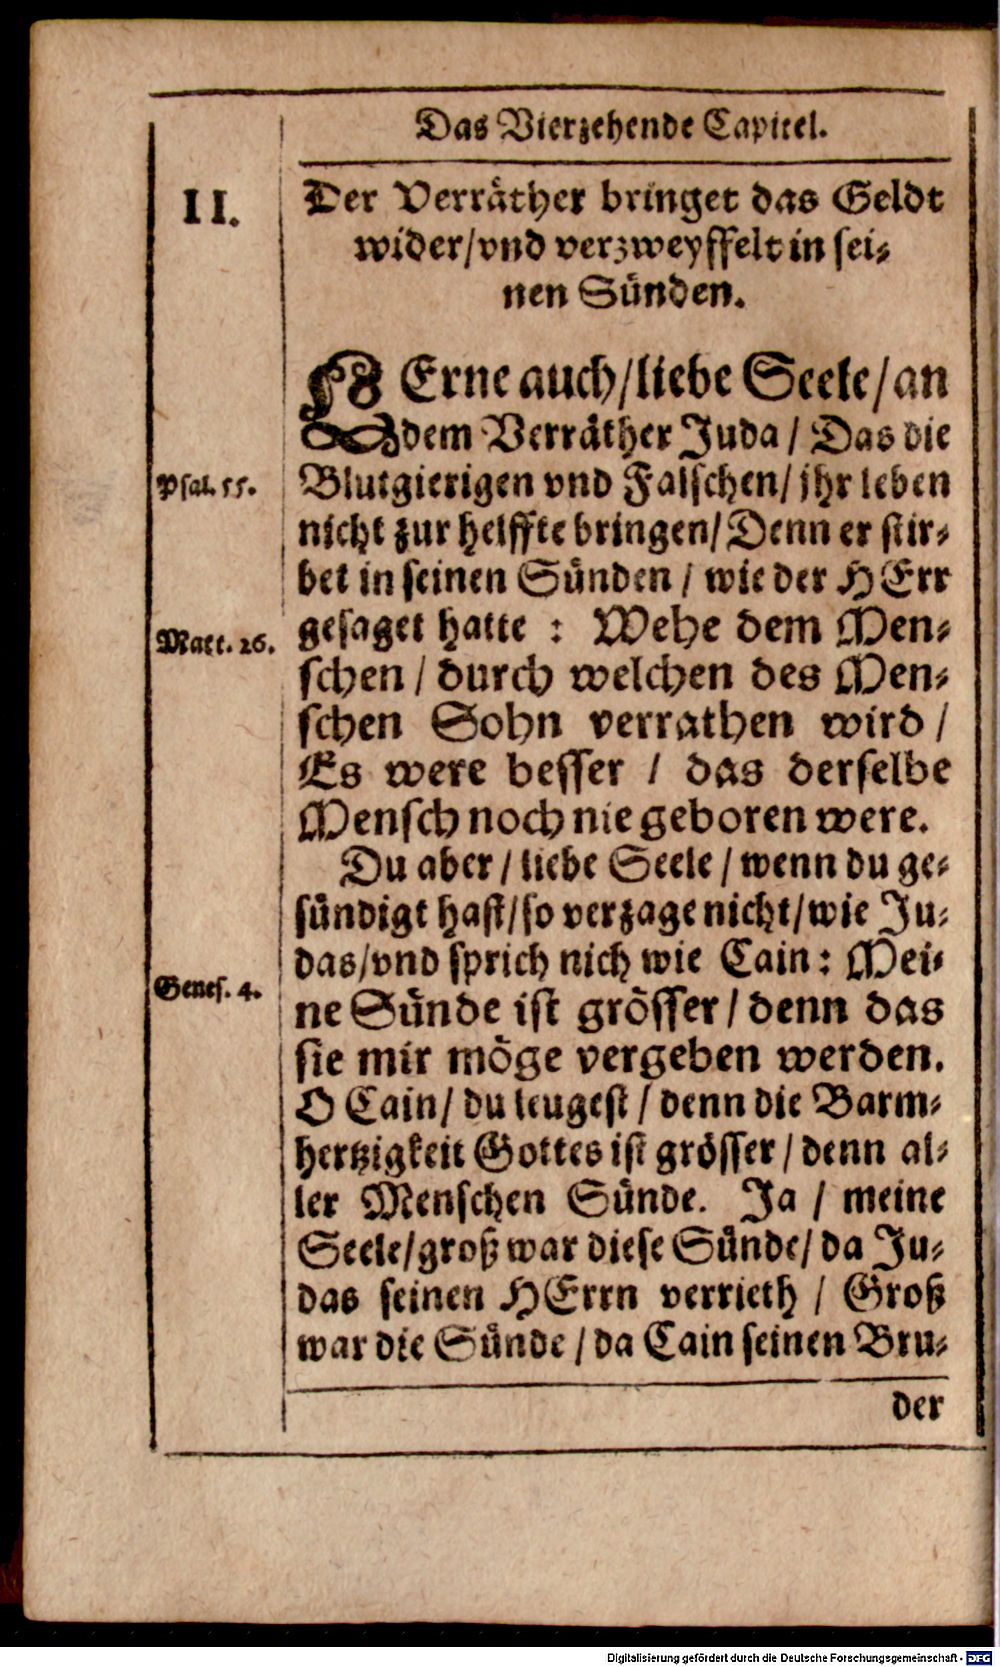 Das Vierzehende Capitel.
II.
Der Verräther bringet das Geldt
wider/vnd verzweyffelt in sei-
nen Sünden.
LErne auch/liebe Seele/an
dem Verräther Juda/Das die
Psal. 55.
Blutgierigen vnd Falschen/ihr leben
nicht zur helffte bringen/Denn er stir-
bet in seinen Sünden/wie der HErr
gesaget hatte: Wehe dem Men-
Matt. 26.
schen/durch welchen des Men-
schen Sohn verrathen wird/
Es were besser/das derselbe
Mensch noch nie geboren were.
Du aber/liebe Seele/wenn du ge-
sündigt hast/so verzage nicht/wie Ju-
das/vnd sprich nich wie Cain: Mei-
Genes. 4.
ne Sünde ist grösser/denn das
sie mir möge vergeben werden.
O Cain/du leugest/denn die Barm-
hertzigkeit Gottes ist grösser/denn al-
ler Menschen Sünde. Ja/meine
Seele/groß war diese Sünde/da Ju-
das seinen HErrn verrieth/Groß
war die Sünde/da Cain seinen Bru-
der
Digitalisierung gefördert durch die Deutsche Forschungsgemeinschaft - DFG